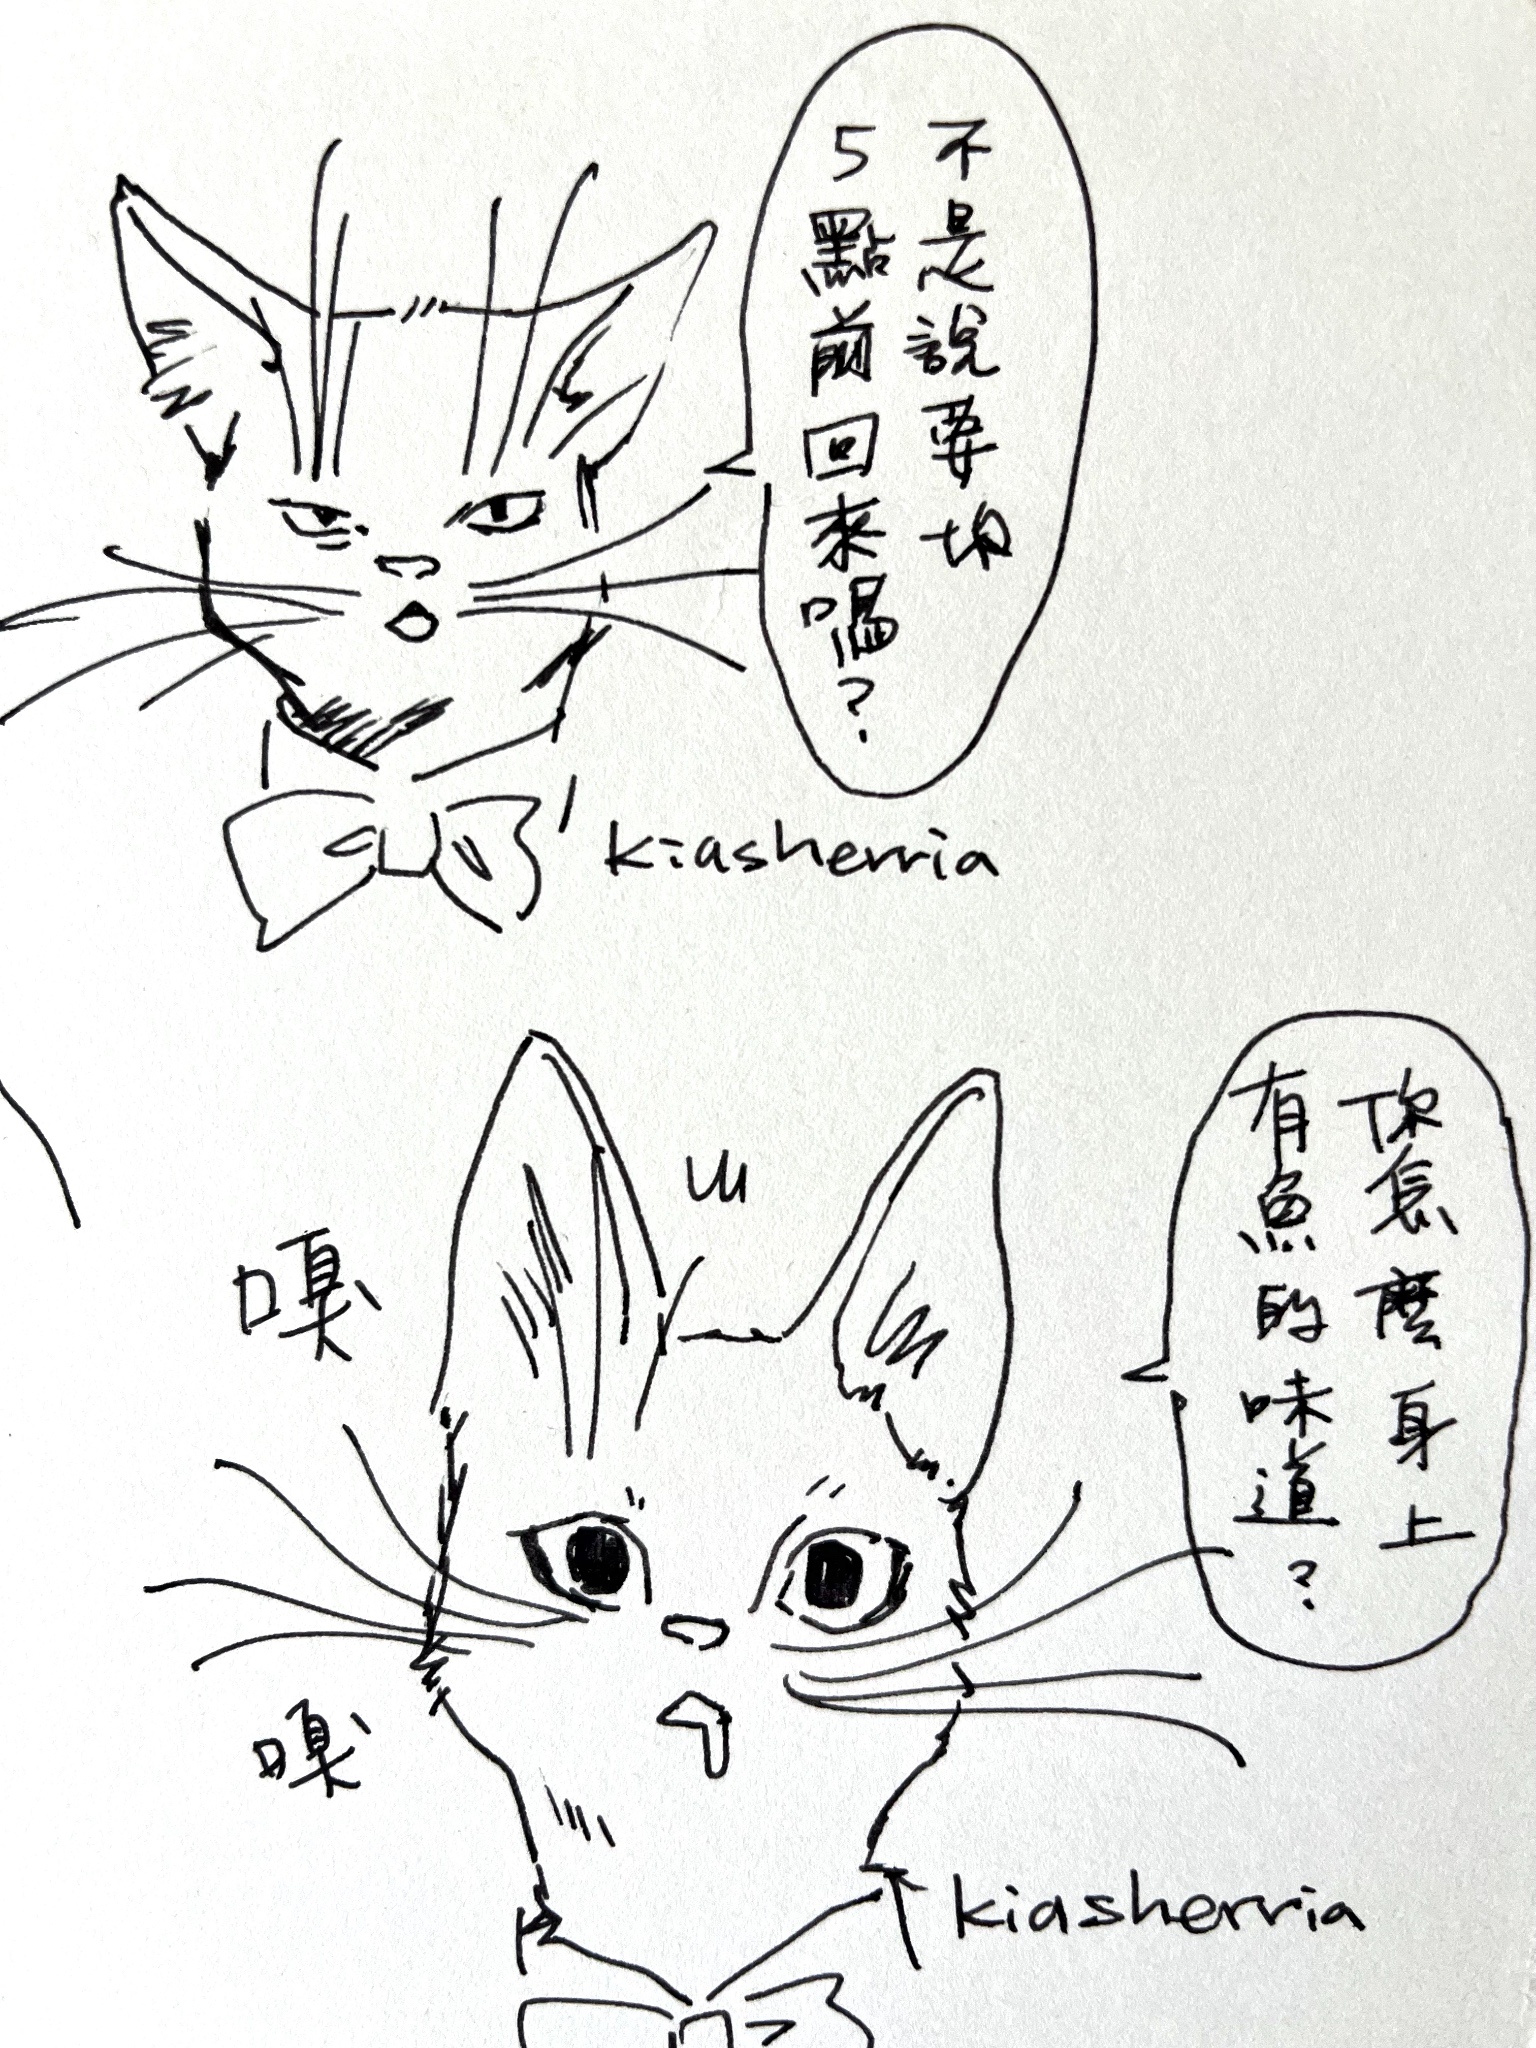 不是說要
5點前回來嗎?
kiasherria
你怎麼身上
有魚的味道?
嘎
嘎
kiasherria